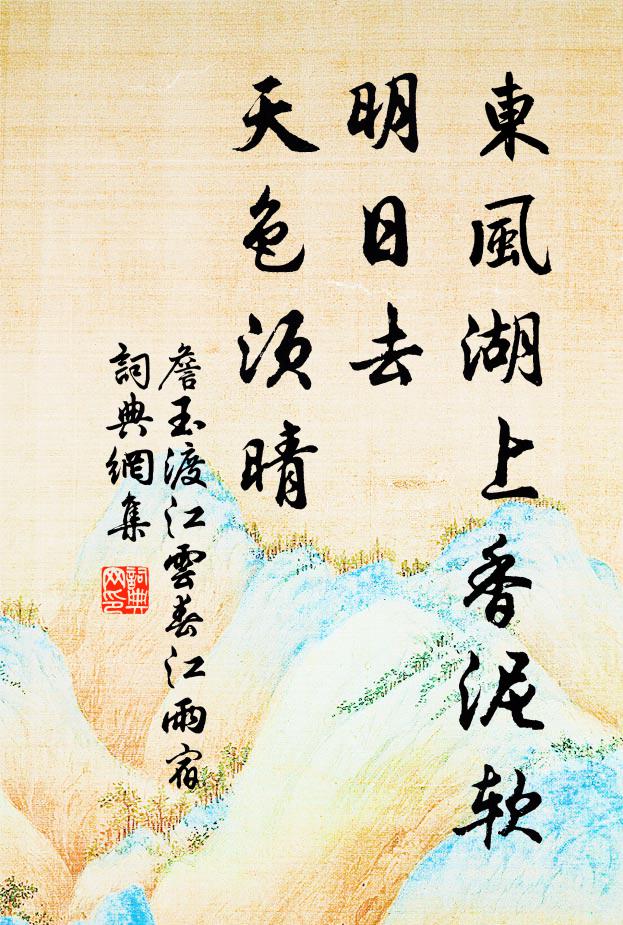 東風湖上香泥軟
明日去
天色須晴
詹玉渡江雲春江雨宿
詞典網集
詞典
网印